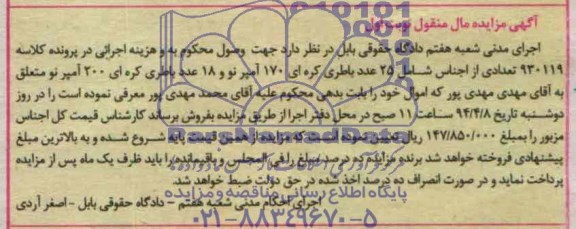 آگهی مزایده مال منقول نوبت اول
اجرای مدنی شعبه هفتم دادگاه حقوقی بابل در نظر دارد جهت وصول محکوم به و هزینه اجرائی در پرونده کلاسه
۹۳۰۱۱۹ تعدادی از اجناس شامل ۲۵ عدد باطری کره ای ۱۷۰ آمپر نو و ۱۸ عدد باطری کره ای ۲۰۰ آمپر نو متعلق
به آقای مهدی مهدی پور که اموال خود را بابت بدهی محکوم علیه آقای محمد مهدی پور معرفی نموده است را در روز
دوشنبه تاریخ ۹۴/۴/۸ ساعت ۱۱ صبح در محل دفتر اجرا از طریق مزایده بفروش برساند کارشناس قیمت کل اجناس
مزبور را بمبلغ ۱۴۷/۸۵۰/۰۰۰ ریال تعیین نموده است که مزایده از همین قیمت پایه شروع شده و به بالاترین مبلغ
پیشنهادی فروخته خواهد شد برنده مزایده ده درصد مبلغ را فی المجلس و باقیمانده را باید ظرف یک ماه پس از مزایده
پرداخت نماید و در صورت انصراف ده درصد اخذ شده در حق دولت ضبط خواهد شد.
پایگاه اطلاع رسانی مناقصه و مزایده
اجرای احکام مدنی شعبه هفتم – دادگاه حقوقی بابل - اصغر آردی
۰۲۱-۸۸۳۴۹۶۷۰-۵